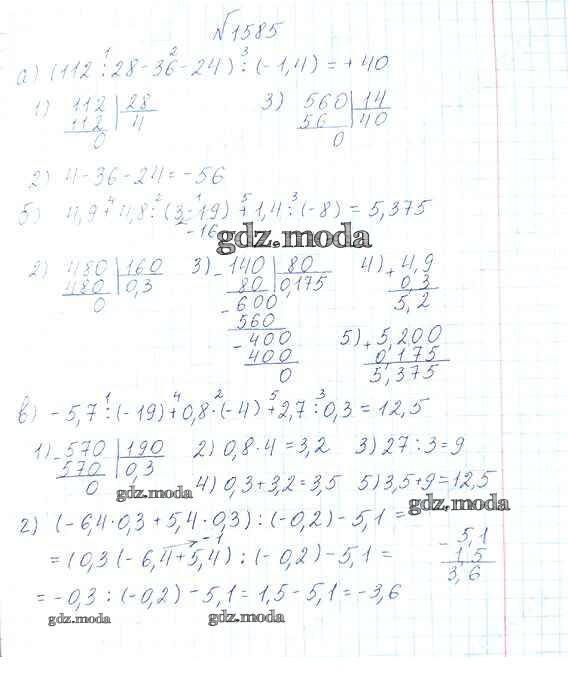 №1585
а) (112 : 28 - 36 - 24) : (-1,4) = +40
1) 112 | 28
112 4
0
3) 560 | 14
56 40
0
2) 4 - 36 - 24 = -56
б) 4,9 + 4,8 : (3 - 19) + 1,4 : (-8) = 5,375
-16
gdz.moda
2) 480 | 160
480 0,3
0
3) - 140 | 80
80 0,175
- 600
560
- 400
400
0
4) + 4,9
0,3
5,2
5) + 5,200
0,175
5,375
в) -5,7 : (-19) + 0,8 · (-4) + 2,7 : 0,3 = 12,5
1) - 570 | 190
570 0,3
0
2) 0,8 · 4 = 3,2 3) 27 : 3 = 9
4) 0,3 + 3,2 = 3,5 5) 3,5 + 9 = 12,5
gdz.moda
gdz.moda
г) (-6,4 · 0,3 + 5,4 · 0,3) : (-0,2) - 5,1 =
-1
= (0,3 (-6,4 + 5,4) : (-0,2) - 5,1 =
- 5,1
1,5
3,6
= -0,3 : (-0,2) - 5,1 = 1,5 - 5,1 = -3,6
gdz.moda
gdz.moda